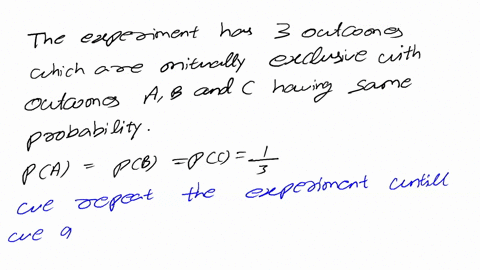 The experiment has 3 outcomes
which are mitually exclusive with
outcomes A, B and C having same
probability.
P(A) = P(B) = P(C) = 1/3
we repeat the experiment untill
we a